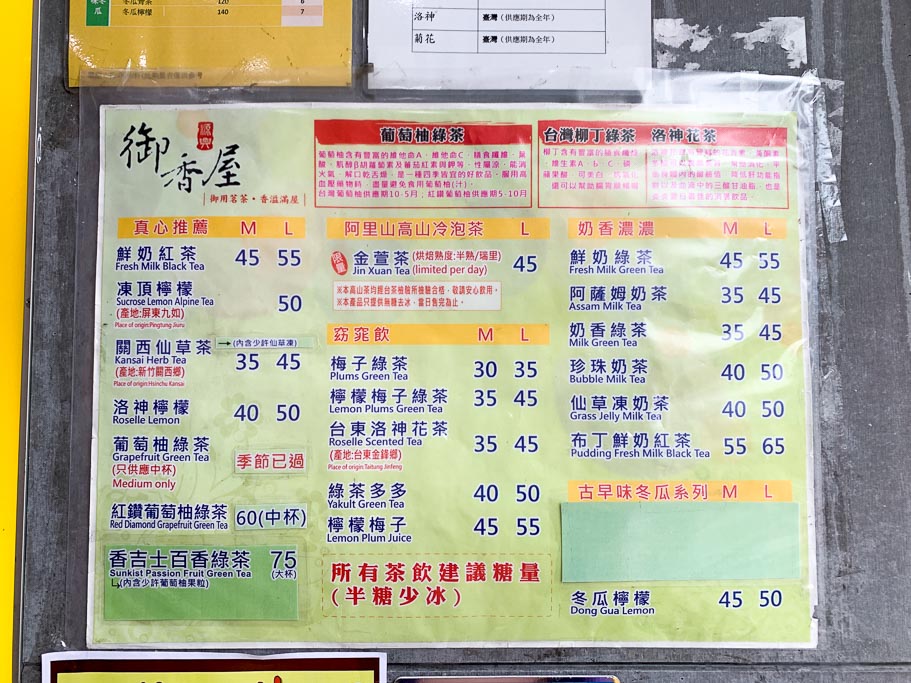 冬瓜 140 7
洛神 臺灣（供應期為全年）
菊花 臺灣（供應期為全年）
御香屋
御用茗茶・香溢滿屋
葡萄柚綠茶
葡萄柚含有豐富的維他命A、維他命C、膳食纖維、葉
台灣葡萄柚供應期10-5月，紅鑽葡萄柚供應期5-10月
台灣柳丁綠茶 洛神花茶
真心推薦 M L
鮮奶紅茶 45 55
Fresh Milk Black Tea
凍頂檸檬 50
Sucrose Lemon Alpine Tea
(產地:屏東九如)
Place of origin:Pingtung Jiuru
關西仙草茶 →(內含少許仙草凍)
Kansai Herb Tea 35 45
(產地:新竹關西鄉)
Place of origin:Hsinchu Kansai
洛神檸檬 40 50
Roselle Lemon
葡萄柚綠茶
Grapefruit Green Tea
(只供應中杯) 季節已過
Medium only
紅鑽葡萄柚綠茶 60(中杯)
Red Diamond Grapefruit Green Tea
香吉士百香綠茶 75
Sunkist Passion Fruit Green Tea (大杯)
(內含少許葡萄柚果粒)
阿里山高山冷泡茶 L
限量 金萱茶(烘焙熟度:半熟/瑞里) 45
Jin Xuan Tea (limited per day)
※本高山茶均經台茶檢驗所檢驗合格，敬請安心飲用。
※本產品只提供無糖去冰，當日售完為止。
窈窕飲 M L
梅子綠茶 30 35
Plums Green Tea
檸檬梅子綠茶 35 45
Lemon Plums Green Tea
台東洛神花茶
Roselle Scented Tea 35 45
(產地:台東金鋒鄉)
Place of origin:Taitung Jinfeng
綠茶多多 40 50
Yakult Green Tea
檸檬梅子 45 55
Lemon Plum Juice
所有茶飲建議糖量
(半糖少冰)
奶香濃濃 M L
鮮奶綠茶 45 55
Fresh Milk Green Tea
阿薩姆奶茶 35 45
Assam Milk Tea
奶香綠茶 35 45
Milk Green Tea
珍珠奶茶 40 50
Bubble Milk Tea
仙草凍奶茶 40 50
Grass Jelly Milk Tea
布丁鮮奶紅茶 55 65
Pudding Fresh Milk Black Tea
古早味冬瓜系列 M L
冬瓜檸檬 45 50
Dong Gua Lemon